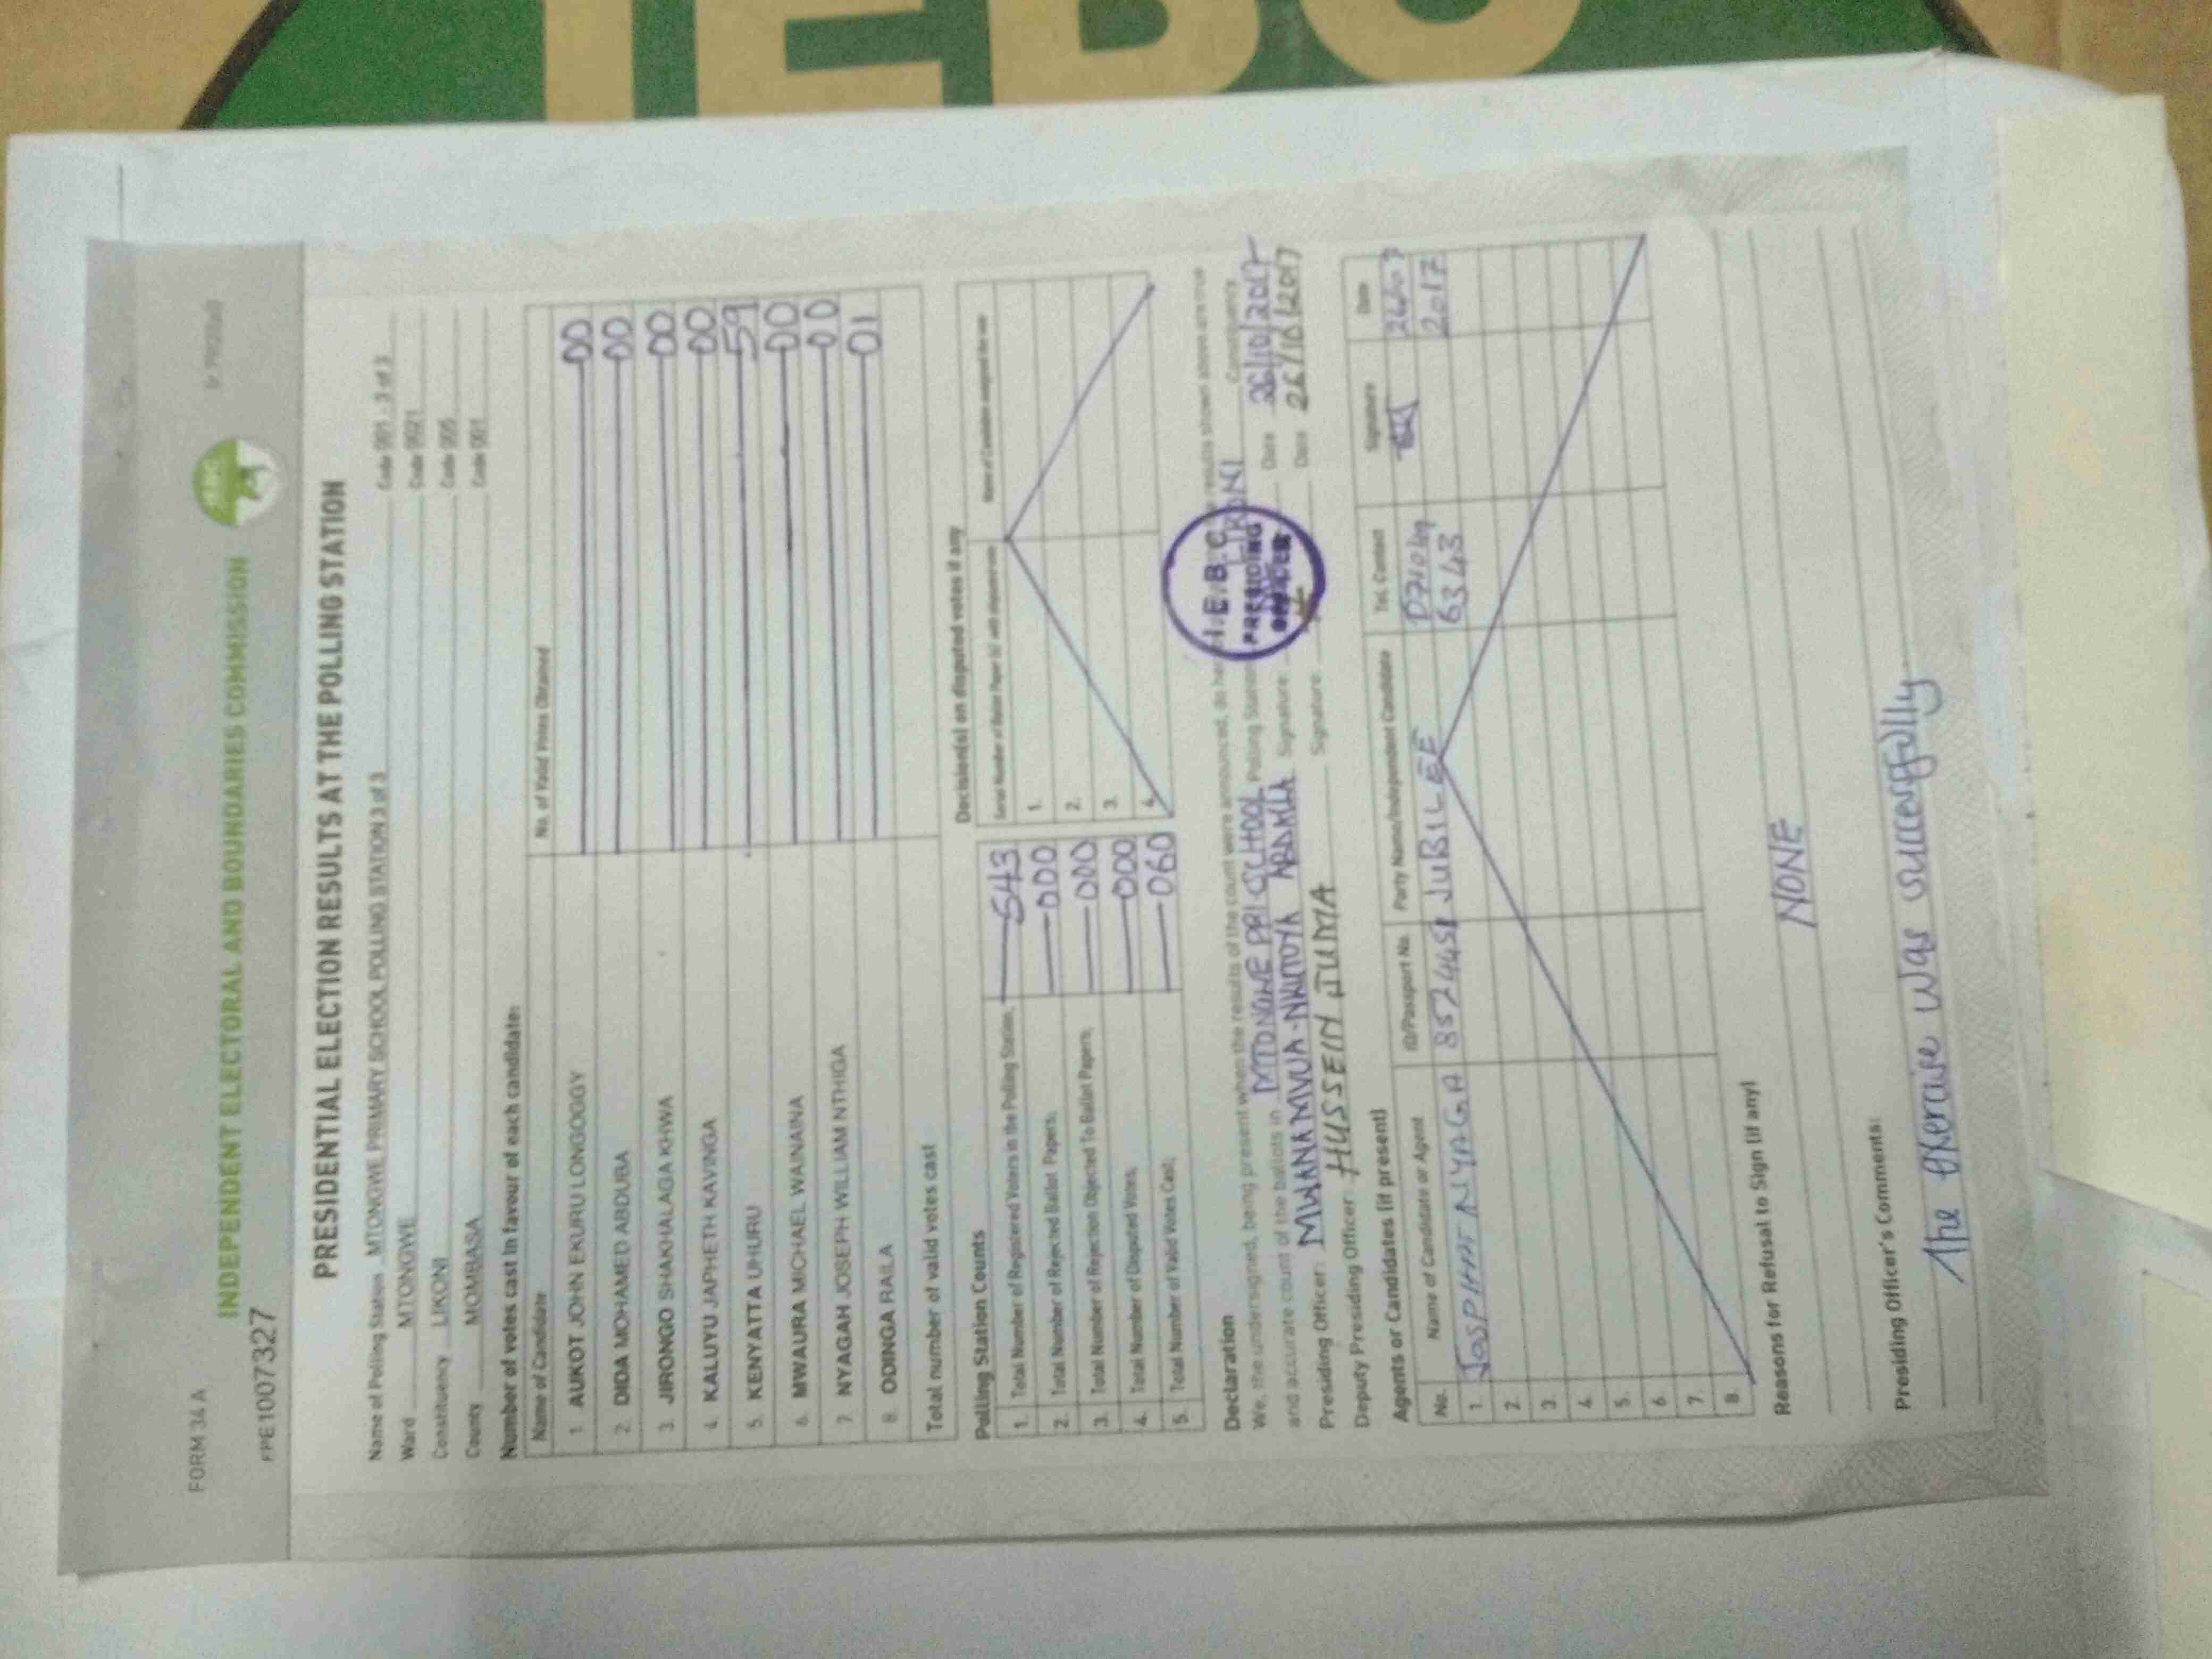 IEBC
FORM 34 A
INDEPENDENT ELECTORAL AND BOUNDARIES COMMISSION
PRE1007327
PRESIDENTIAL ELECTION RESULTS AT THE POLLING STATION
Name of Polling Station MTONGWE PRIMARY SCHOOL POLLING STATION 3 of 3 Code 001 - 3 of 3
Ward MTONGWE Code 0021
Constituency LIKONI Code 005
County MOMBASA Code 001
Number of votes cast in favour of each candidate:
Name of Candidate No. of Valid Votes Obtained
1. AUKOT JOHN EKURU LONGOGGY 00
2. DIDA MOHAMED ABDUBA 00
3. JIRONGO SHAKHALAGA KHWA 00
4. KALUYU JAPHETH KAVINGA 00
5. KENYATTA UHURU 59
6. MWAURA MICHAEL WAINAINA 00
7. NYAGAH JOSEPH WILLIAM NTHIGA 00
8. ODINGA RAILA 01
Total number of valid votes cast
Polling Station Counts
1. Total Number of Registered Voters in the Polling Station; 543
2. Total Number of Rejected Ballot Papers; 000
3. Total Number of Rejection Objected To Ballot Papers; 000
4. Total Number of Disputed Votes; 000
5. Total Number of Valid Votes Cast; 060
Decision(s) on disputed votes if any
1.
2.
3.
4.
Declaration
We, the undersigned, being present when the results of the count were announced, do results shown above are true
and accurate count of the ballots in MTONGWE PRI SCHOOL Polling Station LIKONI Constituency
Presiding Officer: MWANAMVUA Signature: Date 26/10/2017
Deputy Presiding Officer: HUSSEIN JUMA Signature: Date 26/10/2017
I.E.B.C
PRESIDING
OFFICER
Agents or Candidates (if present)
No. Name of Candidate or Agent ID/Passport No. Party Name/Independent Candidate Tel. Contact Signature Date
1. NYAGA JUBILEE 6343 2017
2.
3.
4.
5.
6.
7.
8.
Reasons for Refusal to Sign (if any)
NONE
Presiding Officer's Comments:
The exercise was successfully